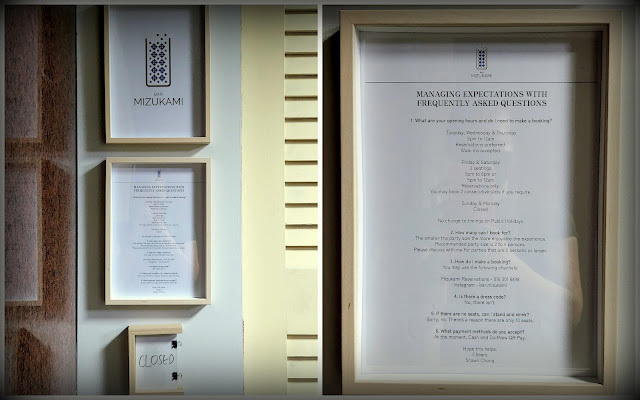 BAR
MIZUKAMI
MANAGING EXPECTATIONS WITH
FREQUENTLY ASKED QUESTIONS
CLOSED
MIZUKAMI
MANAGING EXPECTATIONS WITH
FREQUENTLY ASKED QUESTIONS
1. What are your opening hours and do I need to make a booking?
Tuesday, Wednesday & Thursday
5pm to 12am
Reservations preferred
Walk-ins accepted
Friday & Saturday
2 seatings
5pm to 8pm or
9pm to 12am
Reservations only
You may book 2 consecutive slots if you require.
Sunday & Monday
Closed
No change to timings on Public Holidays
2. How many can I book for?
The smaller the party size, the more enjoyable the experience.
Recommended party size is 2 to 4 persons.
Please discuss with me for parties that are 5 persons or larger.
3. How do I make a booking?
You may use the following channels:
Mizukami Reservations -
Instagram - bar.mizukami
4. Is there a dress code?
No, there isn't.
5. If there are no seats, can I stand and drink?
Sorry, no. There's a reason there are only 10 seats.
6. What payment methods do you accept?
At the moment, Cash and DuitNow QR Pay.
Hope this helps.
Cheers
Shawn Chong